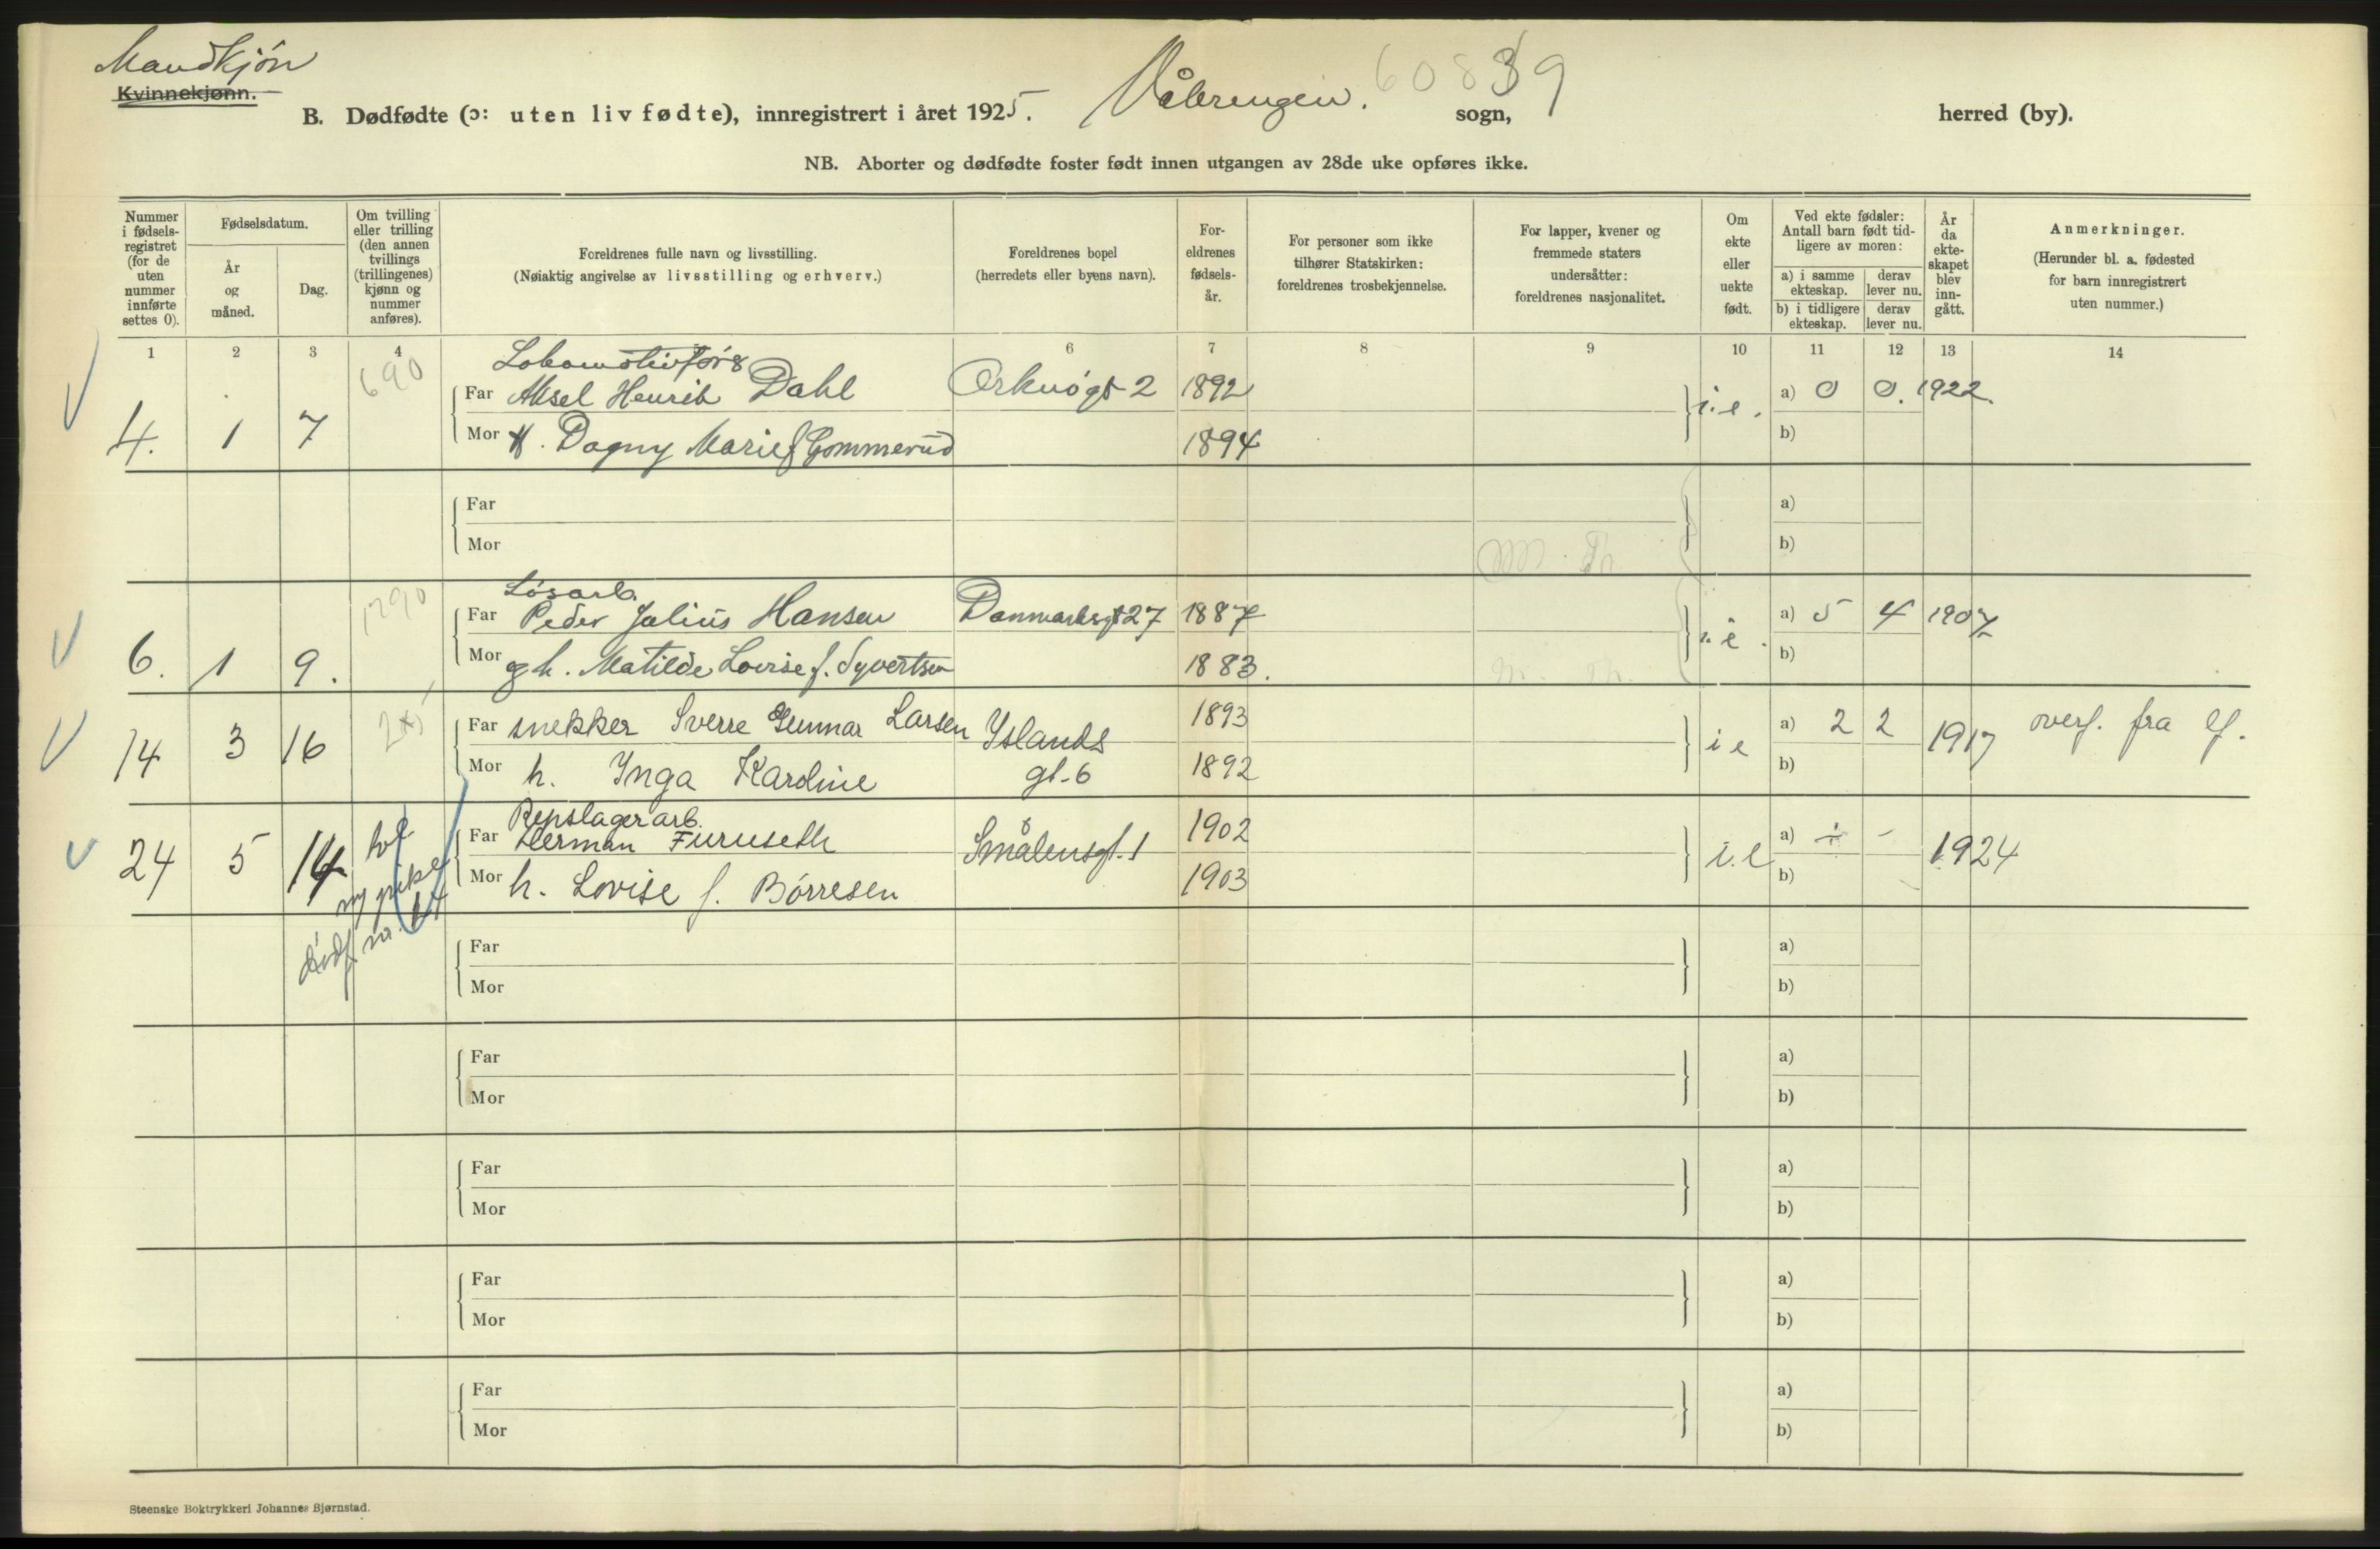 Mandkjøn
Kvinnekjønn.
B. Dødfødte (ɔ: uten liv fødte), innregistrert i året 1925. Vålerengen. sogn, 60839 herred (by).
NB. Aborter og dødfødte foster født innen utgangen av 28de uke opføres ikke.
Nummer i fødsels-registret (for de uten nummer innførte settes 0).
Fødselsdatum.
År og måned.
Dag.
Om tvilling eller trilling (den annen tvillings (trillingenes) kjønn og nummer anføres).
Foreldrenes fulle navn og livsstilling.
(Nøiaktig angivelse av livsstilling og erhverv.)
Foreldrenes bopel
(herredets eller byens navn).
For-eldrenes fødsels-år.
For personer som ikke tilhører Statskirken: foreldrenes trosbekjennelse.
For lapper, kvener og fremmede staters undersåtter: foreldrenes nasjonalitet.
Om ekte eller uekte født.
Ved ekte fødsler: Antall barn født tid-ligere av moren:
a) i samme ekteskap. derav lever nu.
b) i tidligere ekteskap. derav lever nu.
År da ekte-skapet blev inn-gått.
Anmerkninger.
(Herunder bl. a. fødested for barn innregistrert uten nummer.)
1 2 3 4 6 7 8 9 10 11 12 13 14
690 Lokomotivför
Far Aksel Henrik Dahl Orknögt 2 1892 a) 0 0. 1922.
4. 1 7 i.e.
Mor H. Dagny Marie f Gommerud 1894 b)
Far a)
Mor b)
1290 Løsarb.
Far Peder Julius Hansen Danmarksgt 27 1887 a) 5 4 1907
6. 1 9. i.e.
Mor g h. Matilde Lovise f. Syvertsen 1883. b)
Far snekker Sverre Gunnar Larsen Yslands 1893 a) 2 2
14 3 16 i e 1917 overf. fra lf.
Mor h. Inga Karoline gt-6 1892 b)
Repslagerarb.
Far Herman Furuseth Smålensgt. 1 1902 a) ÷ -
24 5 14 i.e 1924
Mor h. Lovise f. Børresen 1903 b)
tvl
m pike
dødf nr. 14
Far a)
Mor b)
Far a)
Mor b)
Far a)
Mor b)
Far a)
Mor b)
Far a)
Mor b)
Steenske Boktrykkeri Johannes Bjørnstad.